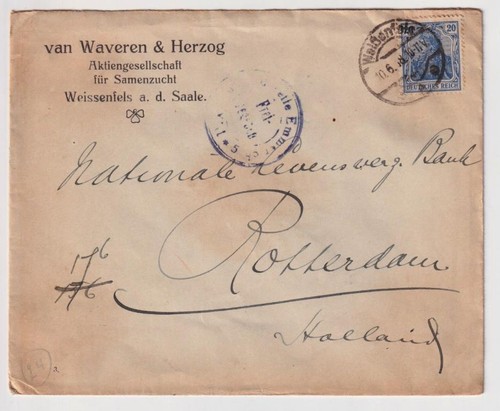 van Waveren & Herzog
Aktiengesellschaft
für Samenzucht
Weissenfels a. d. Saale.
Weißenfels
10.6.
20
DEUTSCHES REICH
Nationale Levensverz. Bank
Rotterdam
Holland
17/6